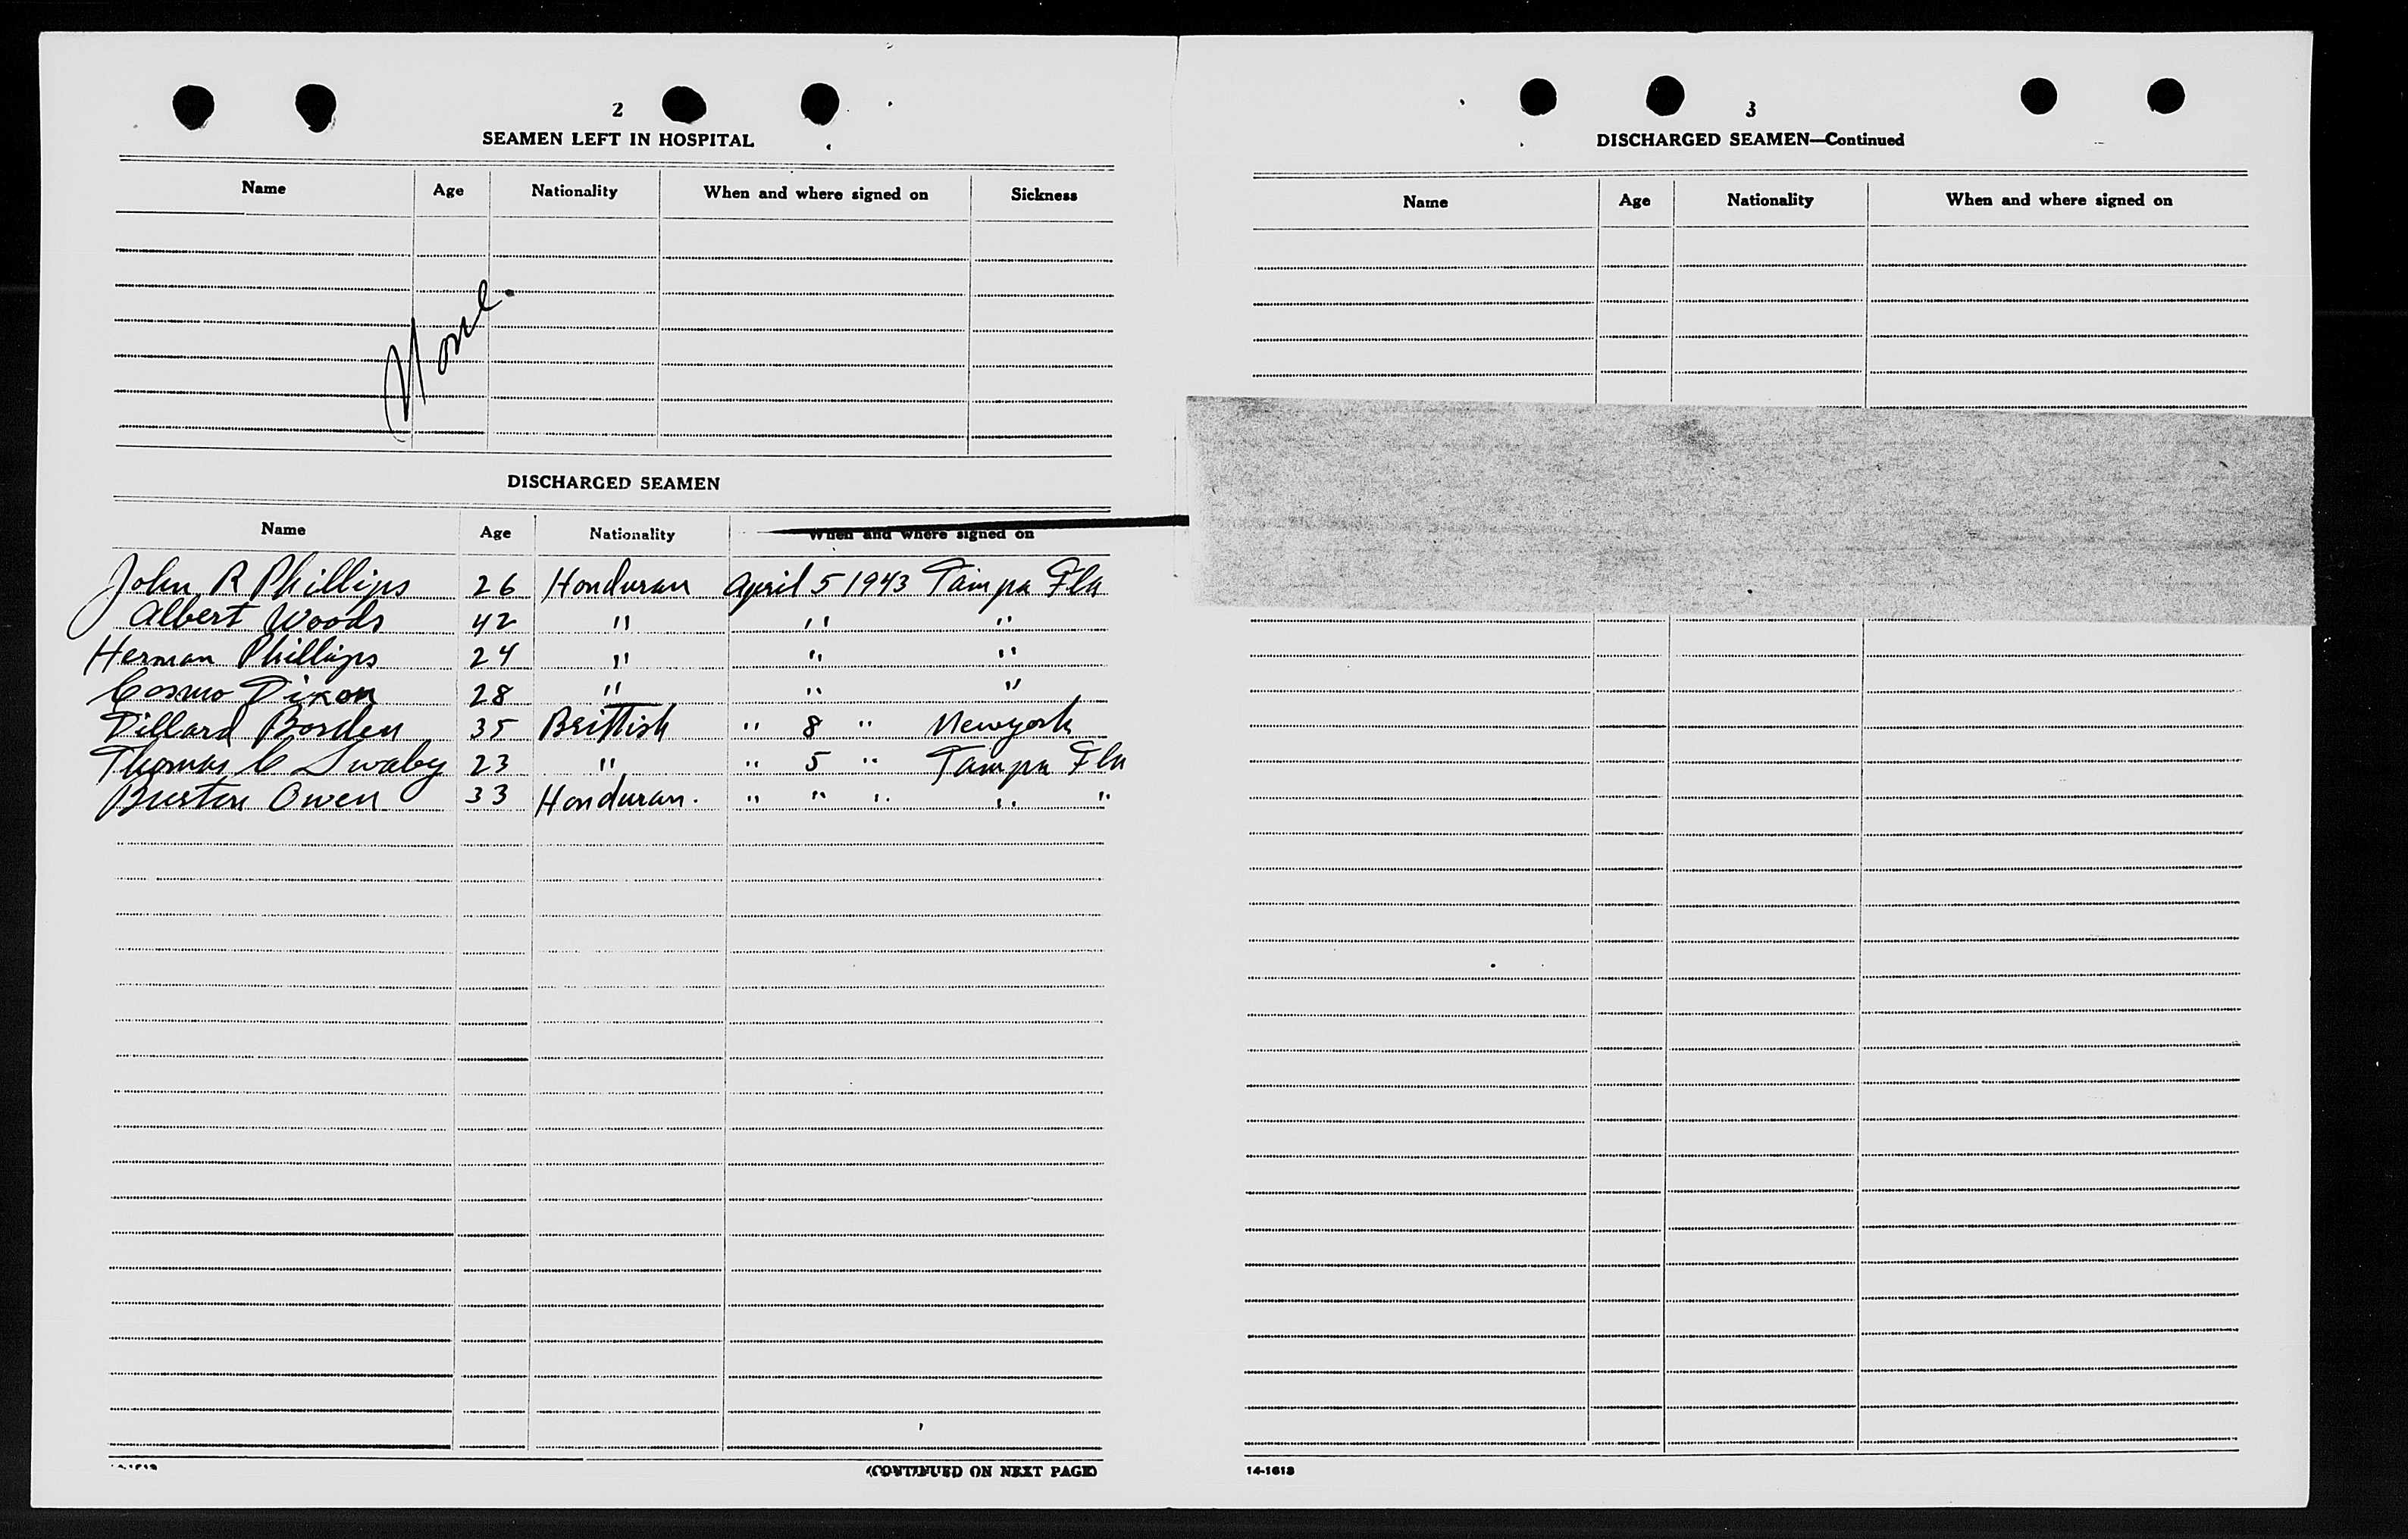 2
SEAMEN LEFT IN HOSPITAL
Name Age Nationality When and where signed on Sickness
None.
DISCHARGED SEAMEN
Name Age Nationality When and where signed on
John R Phillips 26 Honduran April 5 1943 Tampa Fla
Albert Woods 42 " " "
Herman Phillips 24 " " "
Cosmo Dixon 28 " " "
Dillard Borden 35 Brittish " 8 " Newyork
Thomas C Swaby 23 " " 5 " Tampa Fla
Burton Owen 33 Honduran. " " " " "
(CONTINUED ON NEXT PAGE)
3
DISCHARGED SEAMEN—Continued
Name Age Nationality When and where signed on
14-1613